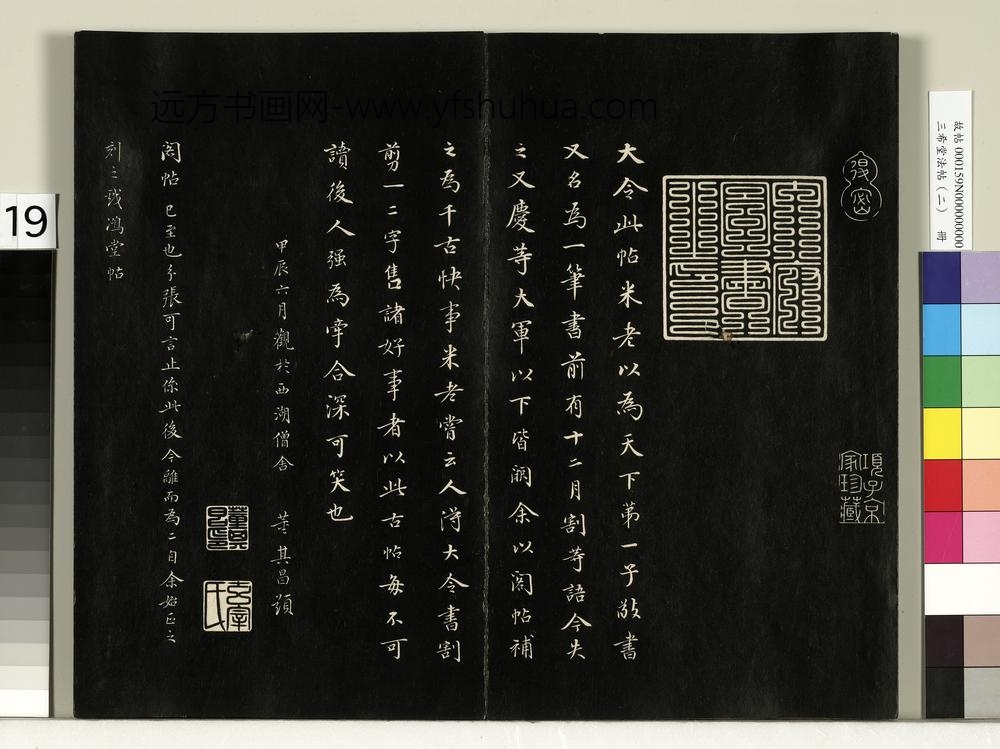 大令此帖米老以為天下第一子敬書
又名為一筆書前有十二月割等語今失
之又慶等大軍以下皆闕余以閣帖補
之為千古快事米老嘗云人得大令書割
剪一二字售諸好事者以此古帖每不可
讀後人強為牽合深可笑也
甲辰六月觀於西湖僧舍 董其昌題
閣帖已至也分張可言止依此後今離而為二自余始正之
刻之戲鴻堂帖
得密
項子京家珍藏
董其昌印
玄宰氏
远方书画网-www.yfshuhua.com
故帖 000159N000000000
三希堂法帖(二) 冊
19